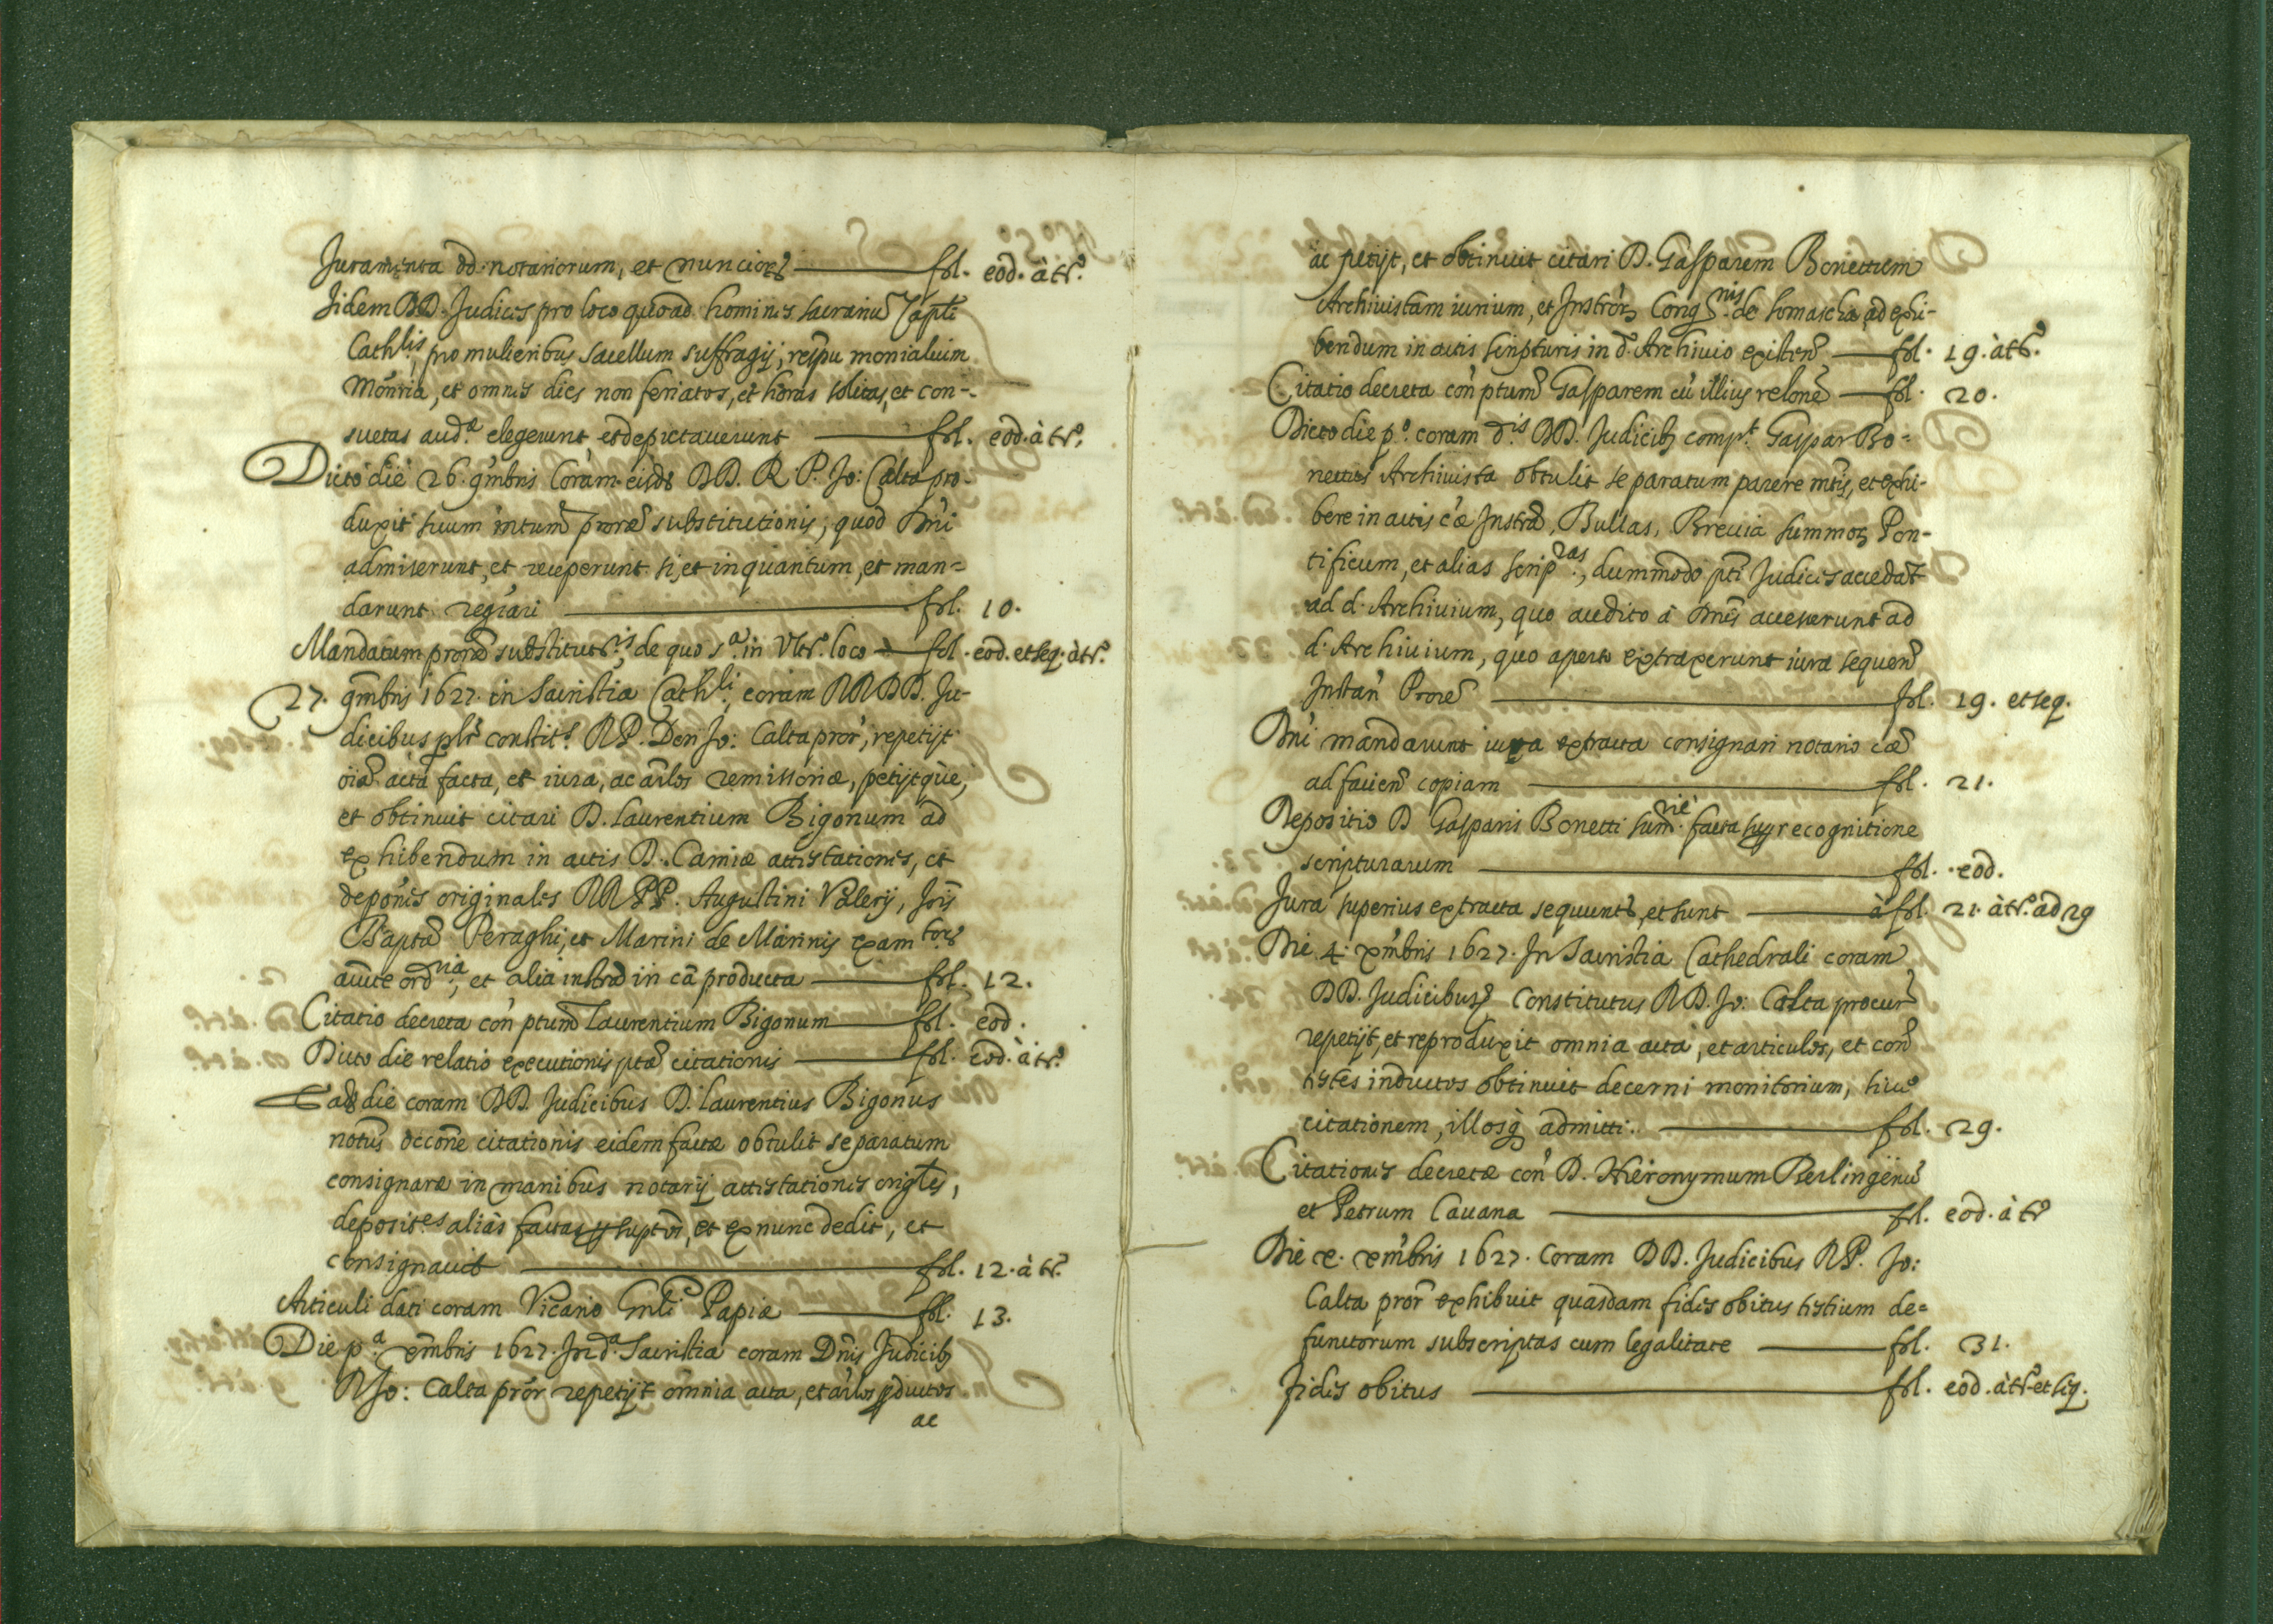 Juramenta dd. notariorum, et nuncior. fol. eod. à tr.º
Jidem DD. Judices pro loco quoad homines sacrariū Capli
Cathlis, pro mulieribus sacellum suffragij, respu monialium
Monria, et omnes dies non feriatos, et horas solitas, et con-
suetas aud.æ elegerunt et depictaverunt fol. eod. à tr.º
Dicto die 26. 9mbris Coram eisd. DD. R. P. Jo: Calta pro-
duxit suum mtum proræ substitutionis, quod Dni
admiserunt, et receperunt si, et in quantum, et man-
darunt regrari fol. 10.
Mandatum proræ substitut.is, de quo s.a in Vltr.º loco fol. eod. et seq. à tr.º
27. 9mbris 1627. in Sacristia Cathli, coram RR DD. Ju-
dicibus plr constit.s RP. Don Jo: Calta pror, repetijt
oia acta facta, et iura, ac arlos remissoriæ, petijtque,
et obtinuit citari D. Laurentium Bigonum ad
exhibendum in actis D. Camiæ attestationes, et
depones originales RR PP. Augustini Valerij, Jois
Baptæ Peraghi, et Marini de Marinis exam.tor
auctte ord.ria, et alia instra in cā producta fol. 12.
Citatio decreta con ptum Laurentium Bigonum fol. eod.
Dicto die relatio executionis ptæ citationis fol. eod. à tr.º
Ead. die coram DD. Judicibus D. Laurentius Bigonus
notus occone citationis eidem factæ obtulit se paratum
consignare in manibus notarij attestationes origles,
deposit.es alias factas et ex nunc dedit, et
consignavit fol. 12. à tr.º
Articuli dati coram Vicario Gnli Papiæ fol. 13.
Die p.a xmbris 1627. In d.a Sacristia coram Dnis Judicib
R Jo: Calta pror repetijt omnia acta, et arlos pductos
ac
ac petijt, et obtinuit citari D. Gasparem Bonettum
Archivistam iurium, et Instror Congnis de Somascha, ad exhi-
bendum in actis scripturis in d. Archivio existen fol. 19. à tr.º
Citatio decreta con ptum Gasparem cū illius relone fol. 20.
Dicto die p.º coram d.is DD. Judicib comp.t Gaspar Bo-
nettus Archivista obtulit se paratum parere mtis, et exhi-
bere in actis cæ Instra, Bullas, Brevia summor Pon-
tificum, et alias scrip.ras, dummodo pti Judices accedat
ad d. Archivium, quo audito à Dnis accesserunt ad
d. Archivium, quo aperto extraxerunt iura sequen
Instan Prore fol. 19. et seq.
Dni mandarunt iura extracta consignari notario cæ
ad facien copiam fol. 21.
Depositio D Gasparis Bonetti sum.rie facta sup recognitione
scripturarum fol. eod.
Jura superius extracta sequuntr, et sunt à fol. 21. à tr.º ad 29
Die 4. xmbris 1627. In Sacristia Cathedrali coram
DD. Judicibus Constitutus RD. Jo: Calta procur
repetijt, et reproduxit omnia acta, et articulos, et con
testes inductos obtinuit decerni monitorium, sive
citationem, illosq admitti fol. 29.
Citationes decretæ con D. Hieronymum Berlingeriū
et Petrum Cavana fol. eod. à tr.º
Die x. xmbris 1627. Coram DD. Judicibus RP. Jo:
Calta pror exhibuit quasdam fides obitus testium de=
functorum subscriptas cum legalitate fol. 31.
Fides obitus fol. eod. à tr.º et seq.